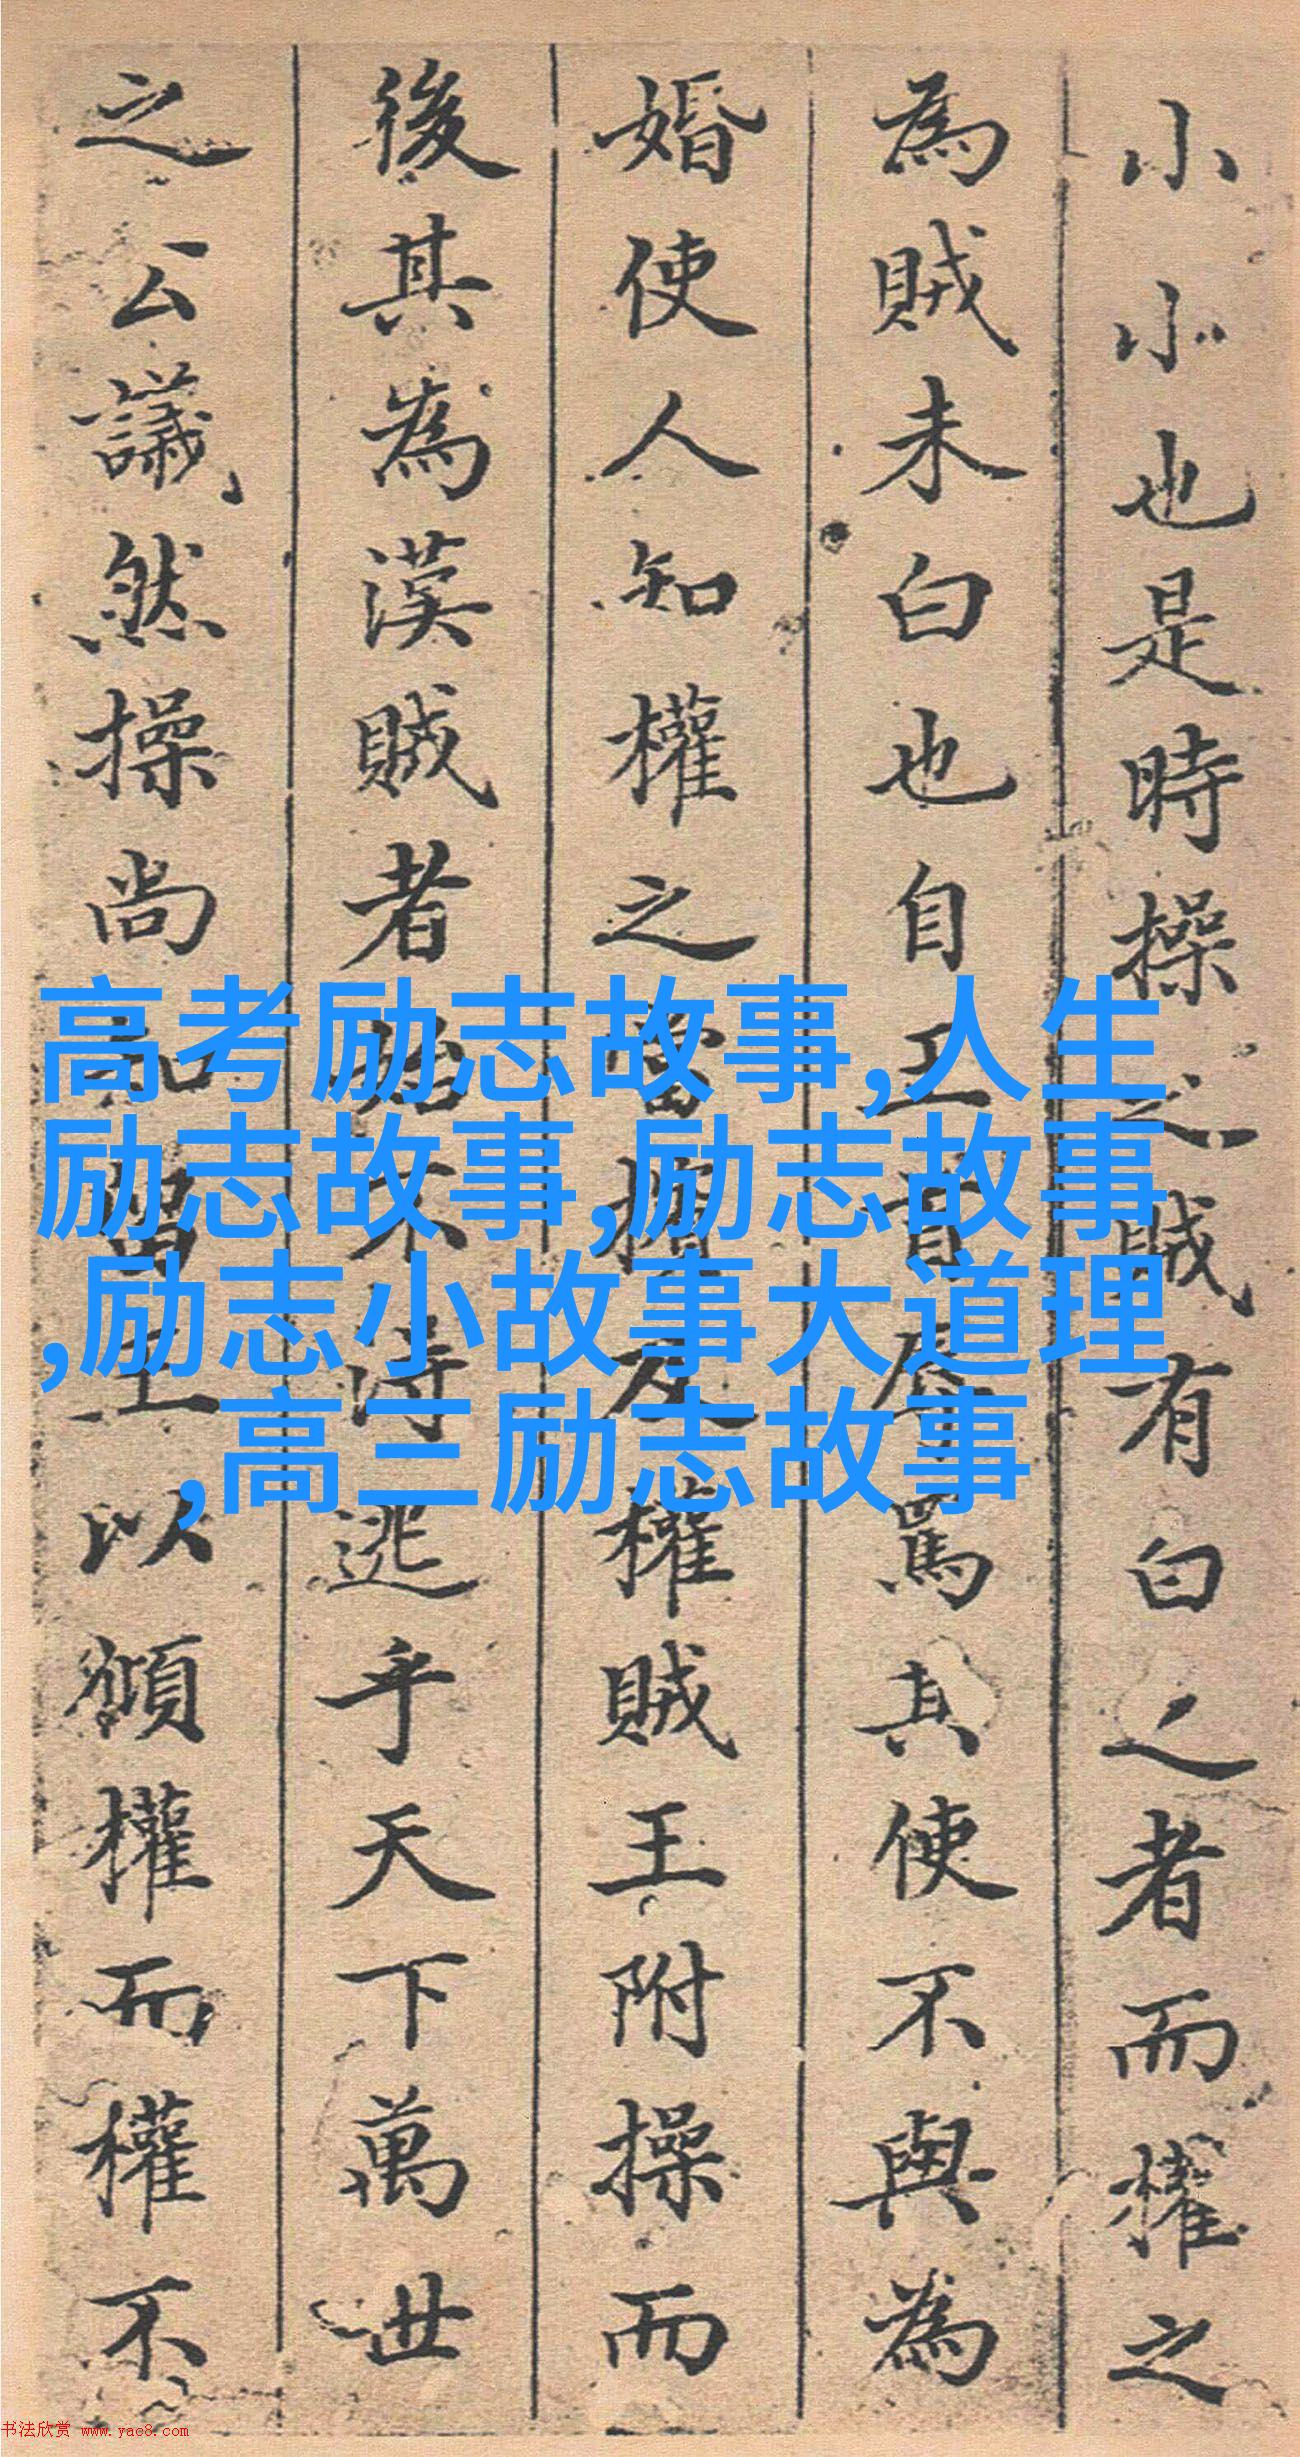 小小也是時操之賊有白之者而權之
為賊未白也自王罵其使不與為
婚使人知權之當及權賊王附操而
後其為漢賊者始不逃乎天下萬世
之公議然操尚知王以權而權不
高考励志故事,人生
励志故事,励志故事
,励志小故事大道理
,高三励志故事
书法欣赏 www.yac8.com